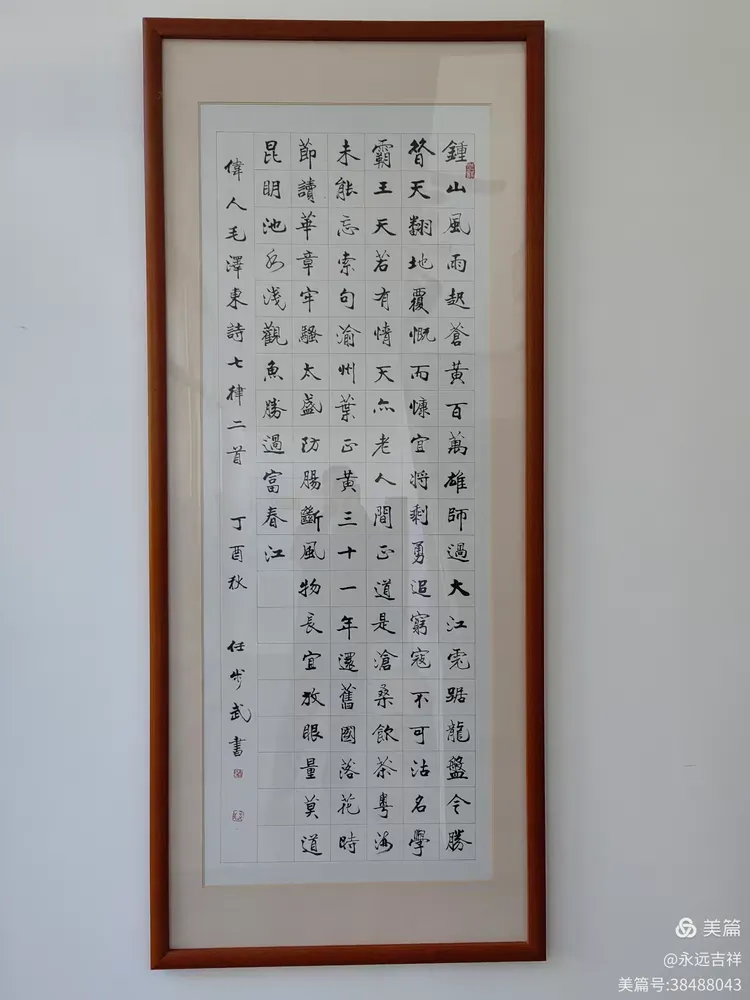 鍾山風雨起蒼黃百萬雄師過大江虎踞龍盤今勝
昔天翻地覆慨而慷宜將剩勇追窮寇不可沽名學
霸王天若有情天亦老人間正道是滄桑飲茶粵海
未能忘索句渝州葉正黃三十一年還舊國落花時
節讀華章牢騷太盛防腸斷風物長宜放眼量莫道
昆明池水淺觀魚勝過富春江
偉人毛澤東詩七律二首 丁酉秋 任步武書
美篇
@永远吉祥
美篇号:38488043